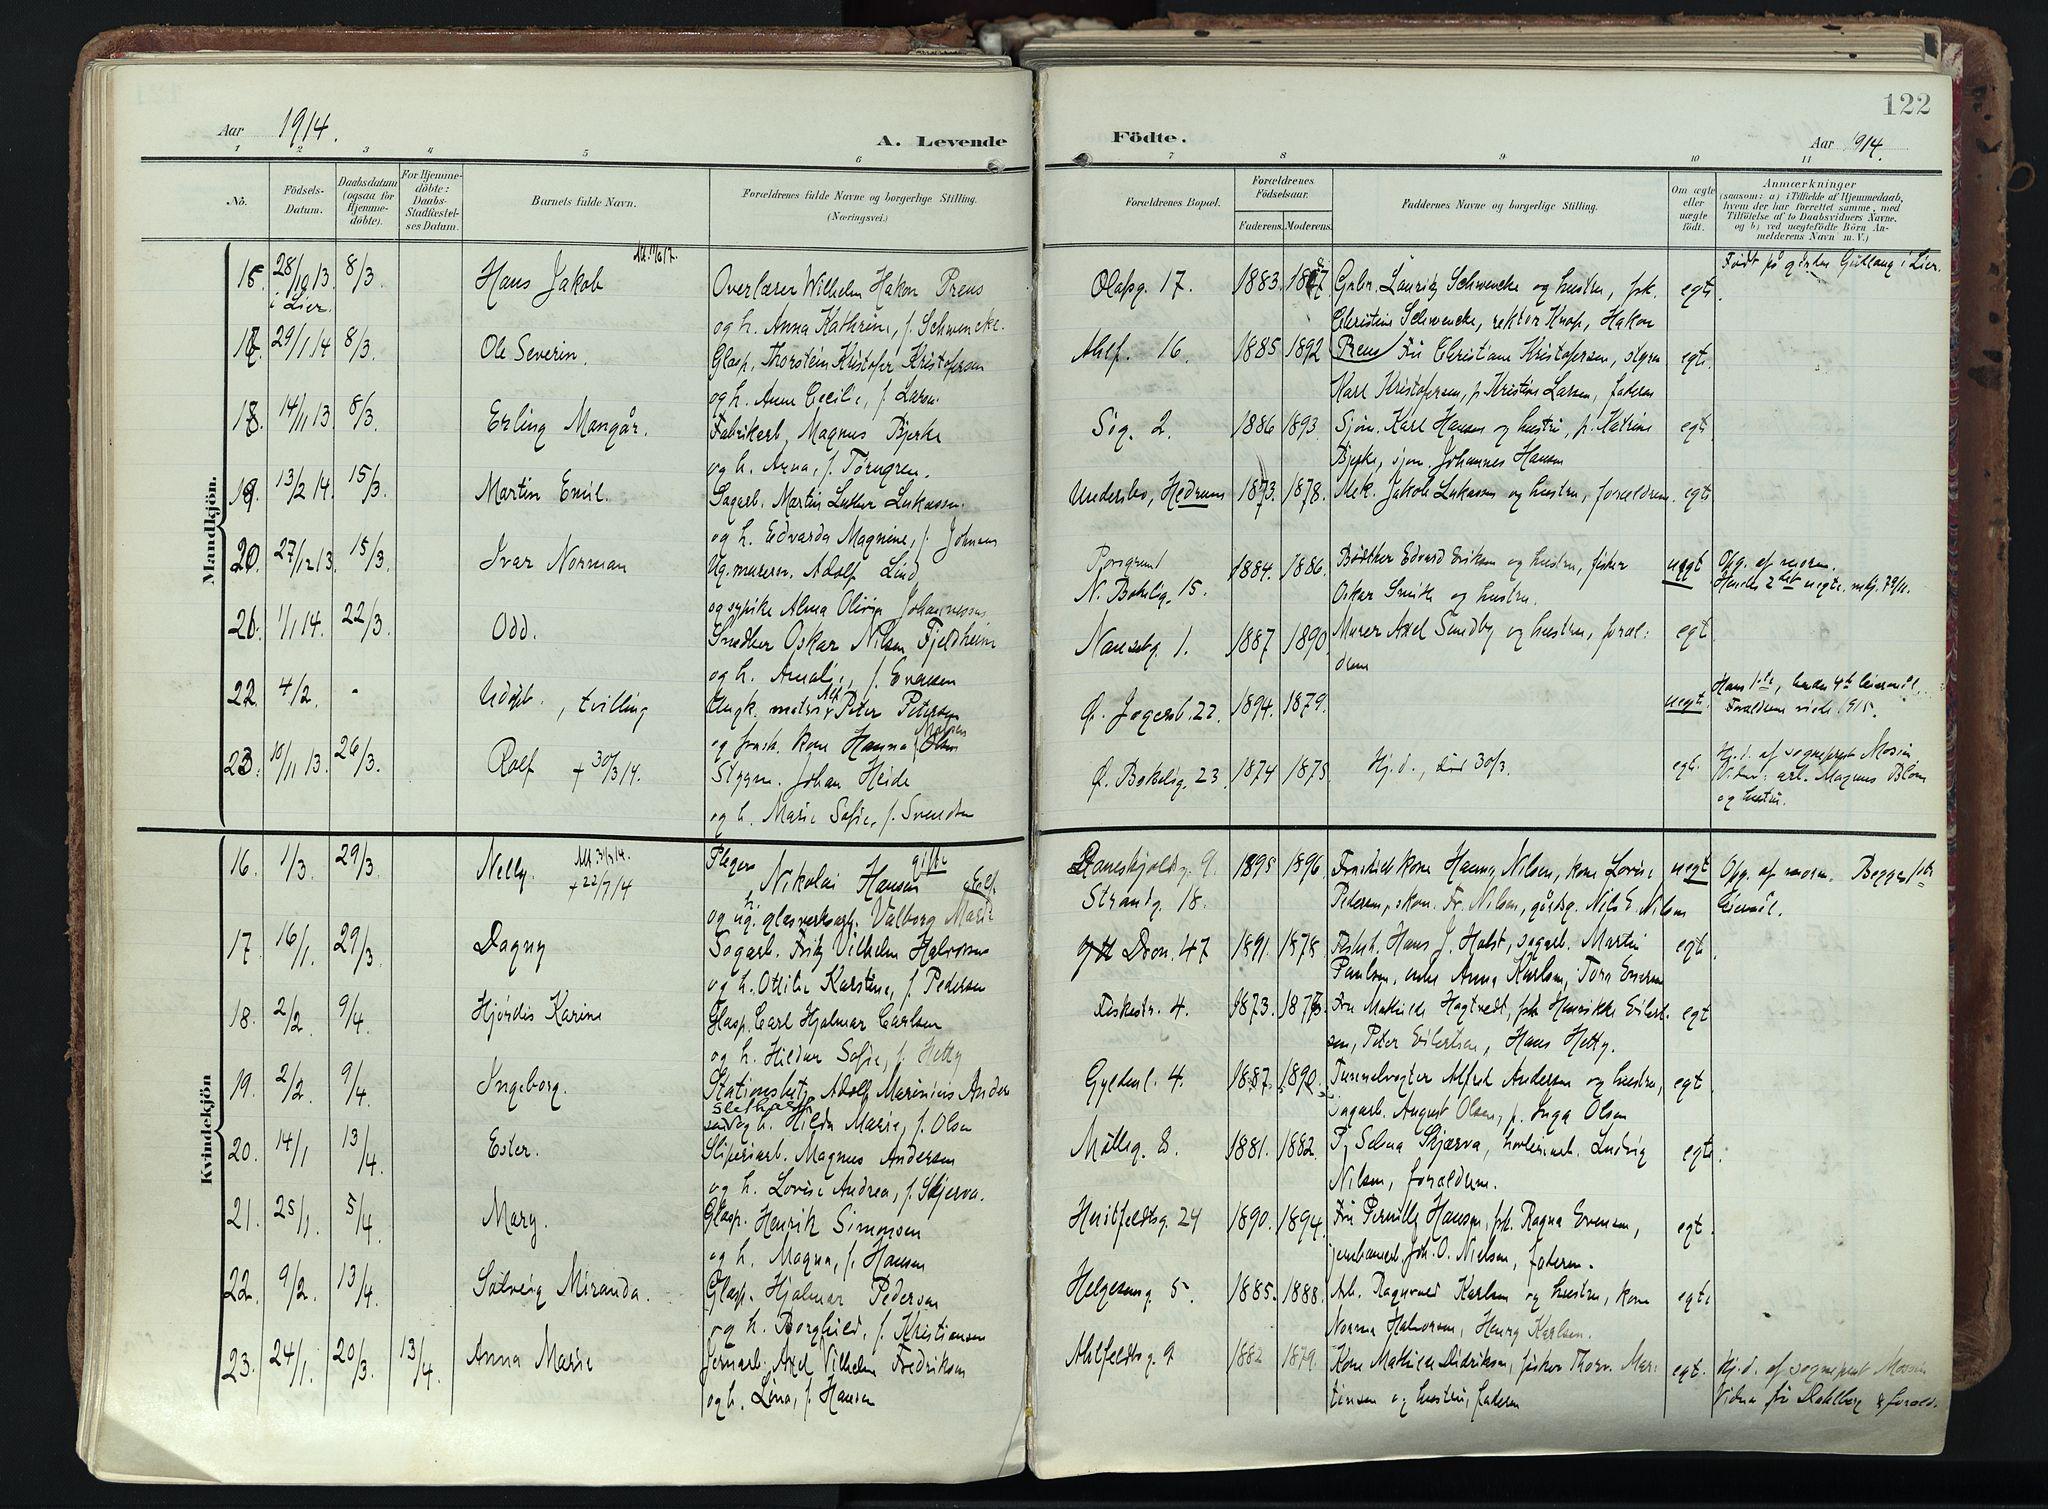 122
Aar 1914.
A. Levende
Födte.
Aar 1914.
1 2 3 4 5 6 7 8 9 10 11
No. Födsels-Datum. Daabsdatum (ogsaa for Hjemme-döbte). For Hjemme-döbte: Daabs-Stadfæstel-ses Datum. Barnets fulde Navn. Forældrenes fulde Navne og borgerlige Stilling. (Næringsvei.)
Forældrenes Bopæl. Forældrenes Födselsaar. Faderens. Moderens. Faddernes Navne og borgerlige Stilling. Om ægte eller uægte födt. Anmærkninger (saasom: a) i Tilfælde af Hjemmedaab, hvem der har forrettet samme, med Tilföielse af to Daabsvidners Navne. og b) ved uægtefödte Börn An-melderens Navn m. V.)
Mandkjön.
28/10 13 8/3. Hans Jakob Overlærer Wilhelm Hakon Preus Olafsg. 17. 1883. Grbr. Lauritz Schwencke og hustru, frk. egte.
i Lier. og h. Anna Kathrine, f. Schwencke. Christine Schwencke, rektor Knap, Hakon
29/1 14 8/3. Ole Severin. Glasp. Thorstein Kristofer Kristofersen Ahlf. 16. 1885 1892 Preus Fru Christiane Kristofersen, styrm egte.
og h. Anne Cecilie, f. Larsen Karl Kristofersen, p. Kristine Larsen, faderen
18. 14/11 13 8/3. Erling Mangår. Fabrikarb. Magnus Bjerke Sög. 2. 1886 1893. Sjöm. Karl Hansen og hustru, p. Katrine egt.
og h. Anna, f. Törngren. Bjerke, sjöm. Johannes Hansen
19. 13/2 14. 15/3. Martin Emil. Sagarb. Martin Luther Lukassen. Undersbo, Hedrum 1873. 1878. Mek. Jakob Lukassen og hustru, forældrene. egt.
og h. Edvarda Magnine, f. Johnsen
20. 27/12 13. 15/3. Ivar Norman Ug. murerm. Adolf Lind Porsgrund 1884. 1886. Bödtker Edvard Eriksen og hustru, fisker uegt Opg. af moren.
og sypike Alma Olivia Johannessen N. Bökelig. 15. Oskar Smith og hustru.
21. 1/1 14. 22/3. Odd. Snedker Oskar Nilsen Fjeldheim Nansetg. 1. 1887 1890 Murer Axel Sundby og hustru, foræl-
og h. Amalie, f. Evensen drene egt
22. 4/2 - Udöbt, tvilling Ungk. matros Alf Peter Petersen Ö. Jegersb. 22. 1894. 1879. uegt.
og frask. kone Hanna Olsen Forældrene viede 1915.
23. 10/11 13. 26/3. Rolf + 30/3 14. Styrm. Johan Heide Ö. Bökelig. 23 1874 1875 Hj.d., död 30/3. egt. Hj.d. af sogneprest Mossin
og h. Marie Sofie, f. Svendsen Vidner: arb. Magnus Blom
og hustru.
Kvindekjön
16. 1/3. 29/3. Nelly. + 22/7 14 Nikolai Hansen gifte Daneskjoldsg. 9 1895 1896. Fraskilt kone Hanna Nilsen, kone Lovise uegt Opg. af moren. Begges 1ste
og ug. glasverksarb. Valborg Marie Strandg. 18. Pedersen, ekon. Fr. Nilsen, gårdsg. Nils E. Nilsen leiermål.
17. 16/1. 29/3 Dagny Sagarb. Fritz Vilhelm Halvorsen Dron. 47 1891. 1878. Hans J. Holst, sagarb. Martin egt.
og h. Ottilie Karstine, f. Pedersen Paulsen, enke Anna Karlsen, Tora Evensen
18. 2/2. 9/4. Hjördis Karine Glasp. Carl Hjalmar Carlsen Feskestr. 4. 1873. Fru Mathilde Hagtvedt, frk Henrikke Eilert- egt
og h. Hildur Sofie, f. Hetty sen, Peter Eilertsen, Hans Hetty.
19. 2/2. 9/4. Ingeborg. Stationsbetj. Adolf Marinius Ander Gyldenl. 4. 1887. 1890. Tunnelvogter Alfred Andersen og hustru, egt.
sen og h. Hilda Marie, f. Olsen sagarb. August Olsen, p. Inga Olsen
20. 14/1 13/4. Ester. Sliperiarb. Magnus Andersen Mölleg. 8. 1881. 1882. P. Selma Skjærva, hovleriarb. Ludvig egte.
og h. Lovise Andrea, f. Skjerva. Nilsen, forældrene.
21. 25/1. 5/4. Mary. Glasp. Henrik Simonsen Huitfeldtsg. 24 1890. 1894. Fru Pernille Hansen, frk. Ragna Evensen, egt.
og h. Magna, f. Hansen jernbanearb. Joh. O. Nielsen, faderen.
22. 9/2. 13/4. Solveig Miranda. Glasp. Hjalmar Pedersen Helgesensg. 5. 1885. 1888. Arb. Ragnvald Karlsen og hustru, kone egte
og h. Borghild, f. Kristiansen Norma Halvorsen, Henry Karlsen.
23. 24/1. 20/3. 13/4. Anna Marie Jernarb. Axel Vilhelm Fredriksen Ahlfeldtsg. 9 1882 1879. Kone Mathilde Didriksen, fisker Thorv. Mar- egt. Hj.d. af sogneprest Mossin
og h. Lina, f. Hansen tinsen og hustru, faderen Vidne fru Dahlberg & foræld.